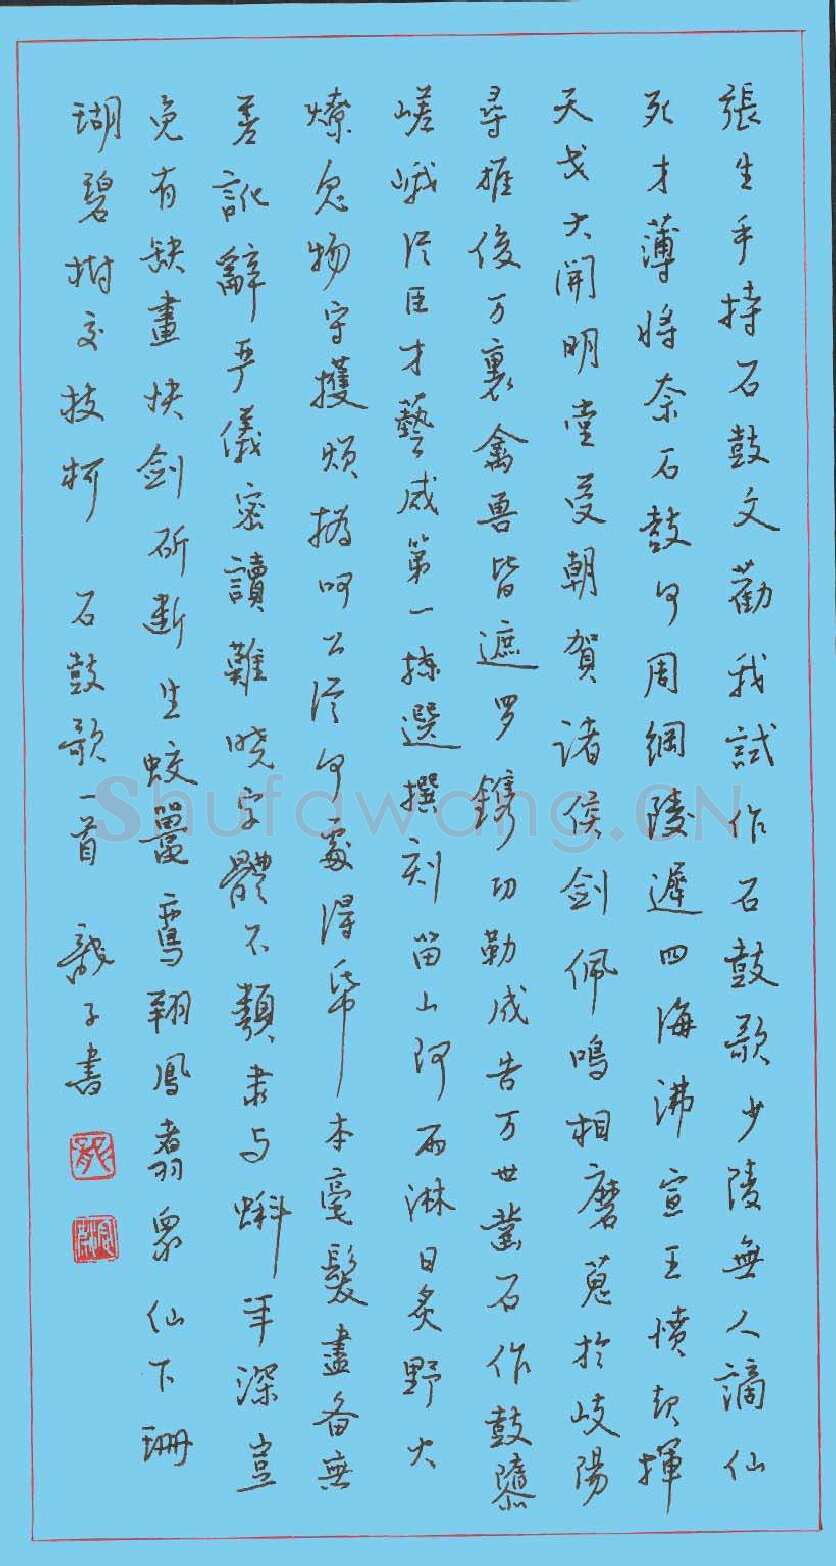 張生手持石鼓文勸我試作石鼓歌少陵無人謫仙
死才薄將奈石鼓何周綱陵遲四海沸宣王憤起揮
天戈大開明堂受朝賀诸侯劍佩鳴相磨蒐於岐陽
俊万裏禽兽皆遮罗鐫功勒成告万世鑿石作鼓隳
嵯峨從臣才藝咸第一揀選撰刻留山阿雨淋日炙野火
燎鬼物守擭煩撝呵公從何處得紙本毫髮盡备無
差訛辭严儀密讀難晓字體不類隶与蝌年深豈
免有缺畫快劍斫断生蛟鼉鸞翔鳳翥衆仙下珊
瑚碧樹交技柯 石鼓歌一首 子書
Shufawang.CN